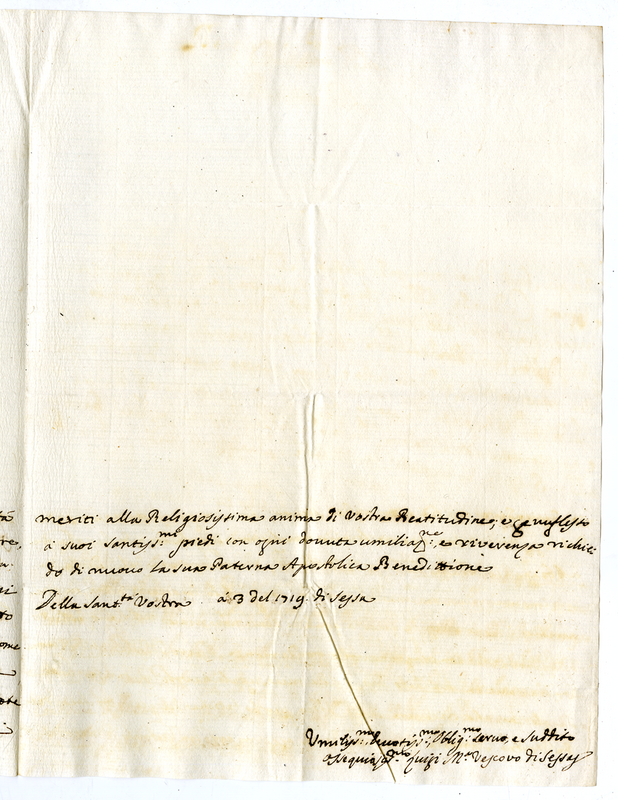 meriti alla Religiosissima anima di Vostra Beatitudine, e genuflesso
à suoi santiss.mi piedi con ogni dovuta umiliaz.ne, e riverenza richie-
do di nuovo la sua Paterna Apostolica Benedittione
Della Sant.tà Vostra à 3 del 1719 di Sessa
Umiliss.mo Devotiss.mo Oblig.mo servo, e suddito
Luigi M.a Vescovo di Sessa